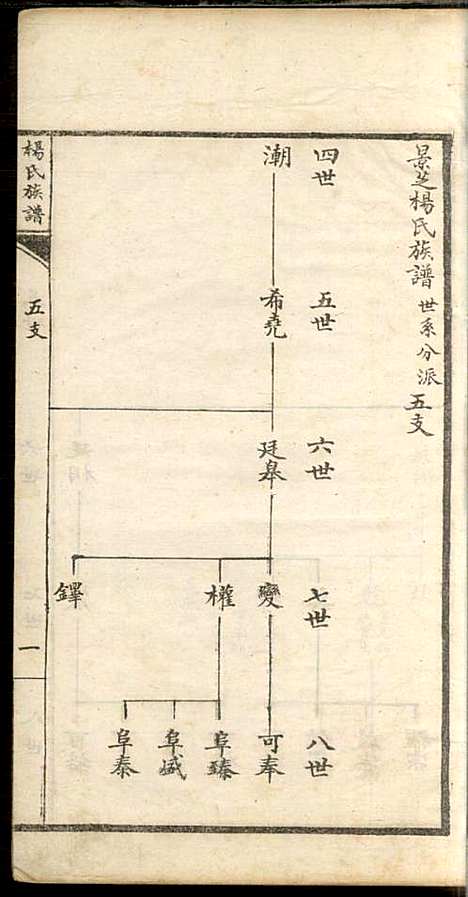 景芝楊氏族譜 世系分派 五支
四世
五世
六世
七世
八世
潮
希堯
廷舉
變
可奉
權
阜臻
阜盛
阜泰
鐸
楊氏族譜
五支
一